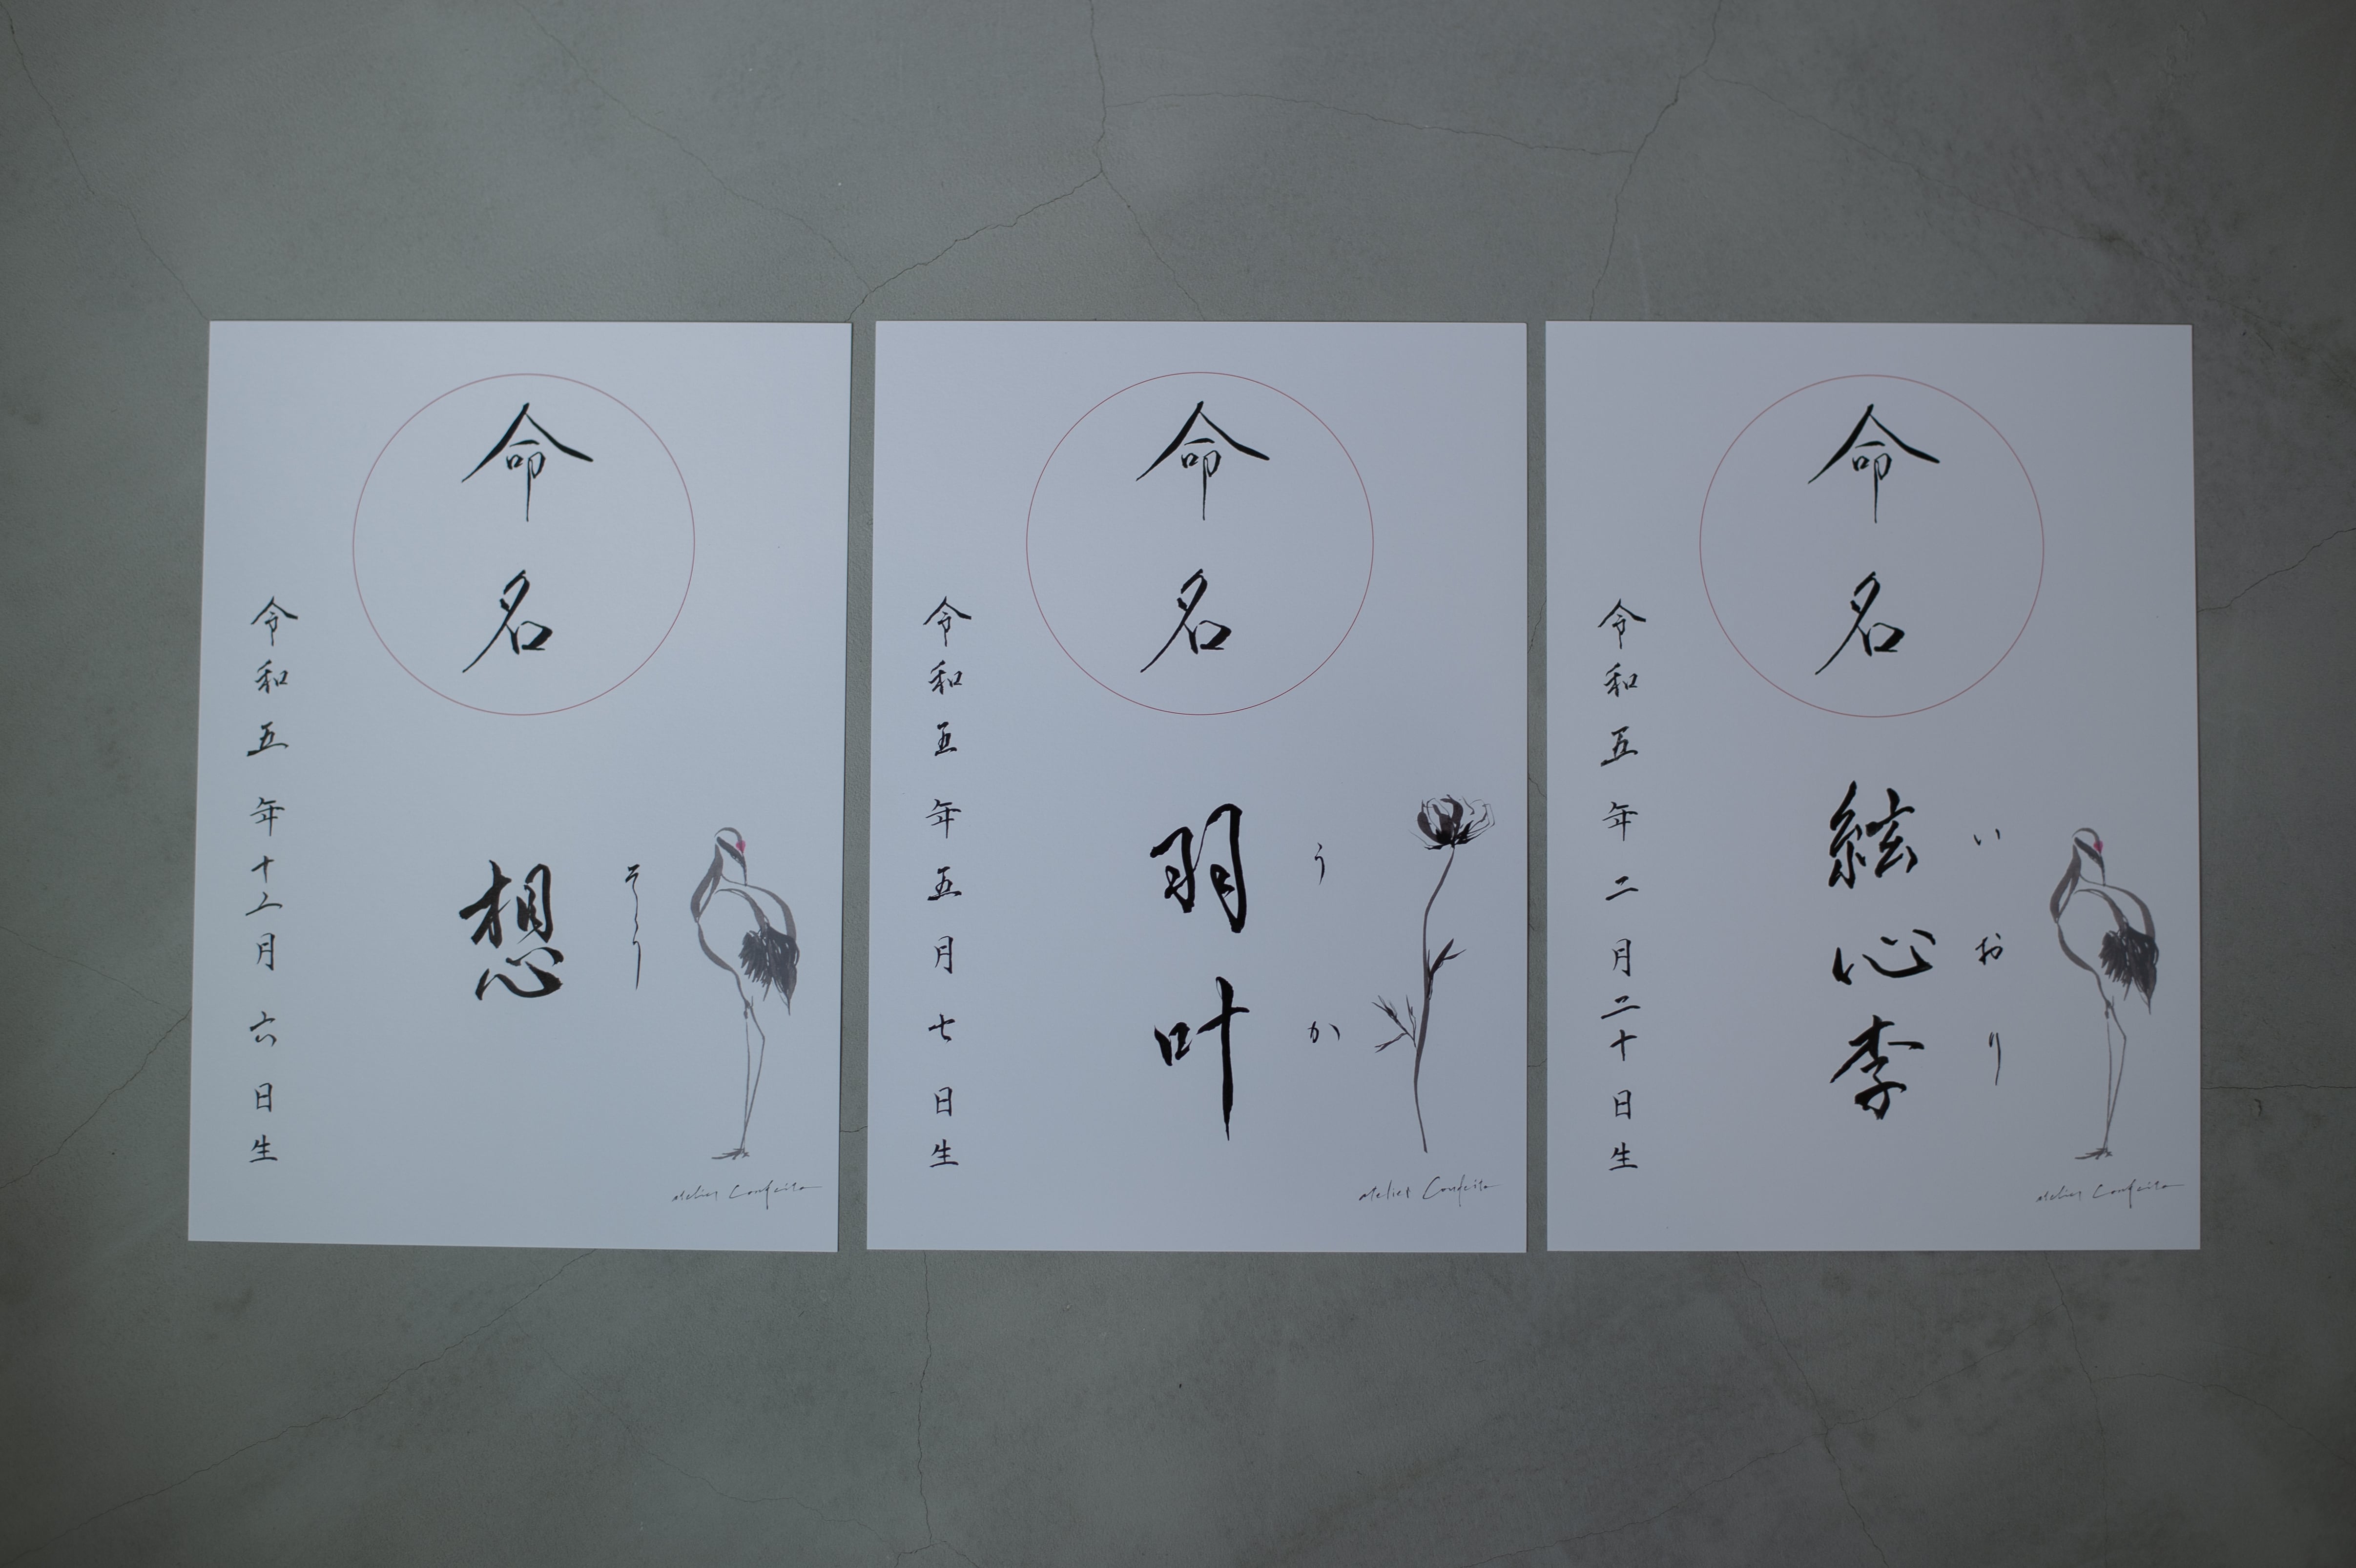 命名
そう
想
令和五年十二月六日生
atelier Confeito
命名
うか
羽叶
令和五年五月七日生
atelier Confeito
命名
いおり
絃心李
令和五年二月二十日生
atelier Confeito